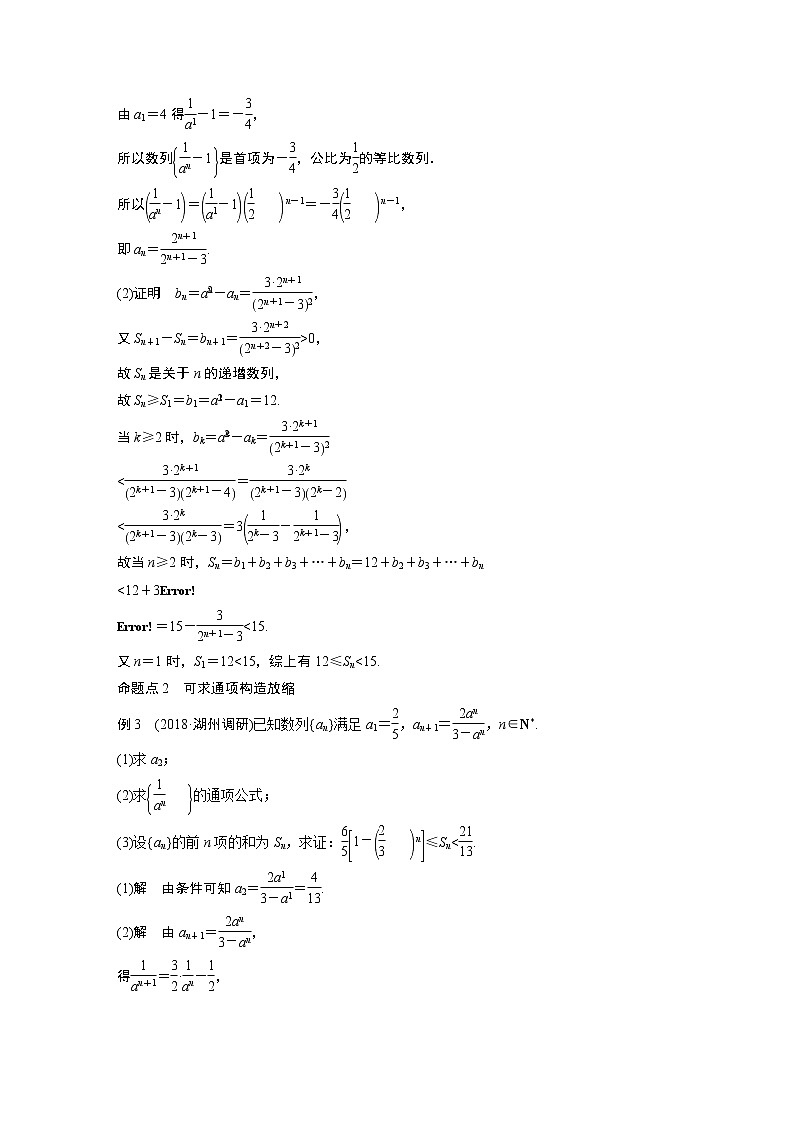 由 a₁=4 得\frac{1}{a^1}-1=-\frac{3}{4},
所以数列{\frac{1}{a^n}-1}是首项为-\frac{3}{4},公比为\frac{1}{2}的等比数列.
所以(\frac{1}{a^n}-1)=(\frac{1}{a^1}-1)(\frac{1}{2})^{n-1}=-\frac{3}{4}(\frac{1}{2})^{n-1},
即 a_n=\frac{2^{n+1}}{2^{n+1}-3}.
(2)证明 b_n=a_n^2-a_n=\frac{3·2^{n+1}}{(2^{n+1}-3)^2},
又 S_{n+1}-S_n=b_{n+1}=\frac{3·2^{n+2}}{(2^{n+2}-3)^2}>0,
故 S_n 是关于 n 的递增数列,
故 S_n≥S₁=b₁=a_1^2-a₁=12.
当 k≥2 时,b_k=a_k^2-a_k=\frac{3·2^{k+1}}{(2^{k+1}-3)^2}
<\frac{3·2^{k+1}}{(2^{k+1}-3)(2^{k+1}-4)}=\frac{3·2^k}{(2^{k+1}-3)(2^k-2)}
<\frac{3·2^k}{(2^{k+1}-3)(2^k-3)}=3(\frac{1}{2^k-3}-\frac{1}{2^{k+1}-3}),
故当 n≥2 时,S_n=b₁+b₂+b₃+…+b_n=12+b₂+b₃+…+b_n
<12+3Error!
Error!=15-\frac{3}{2^{n+1}-3}<15.
又 n=1 时,S₁=12<15,综上有 12≤S_n<15.
命题点 2 可求通项构造放缩
例 3 (2018·湖州调研)已知数列{a_n}满足 a₁=\frac{2}{5},a_{n+1}=\frac{2a^n}{3-a^n},n∈N^*.
(1)求 a₂;
(2)求{\frac{1}{a^n}}的通项公式;
(3)设{a_n}的前 n 项的和为 S_n,求证:\frac{6}{5}[1-(\frac{2}{3})^n]≤S_n<\frac{21}{13}.
(1)解 由条件可知 a₂=\frac{2a^1}{3-a^1}=\frac{4}{13}.
(2)解 由 a_{n+1}=\frac{2a^n}{3-a^n},
得\frac{1}{a^{n+1}}=\frac{3}{2}·\frac{1}{a^n}-\frac{1}{2},